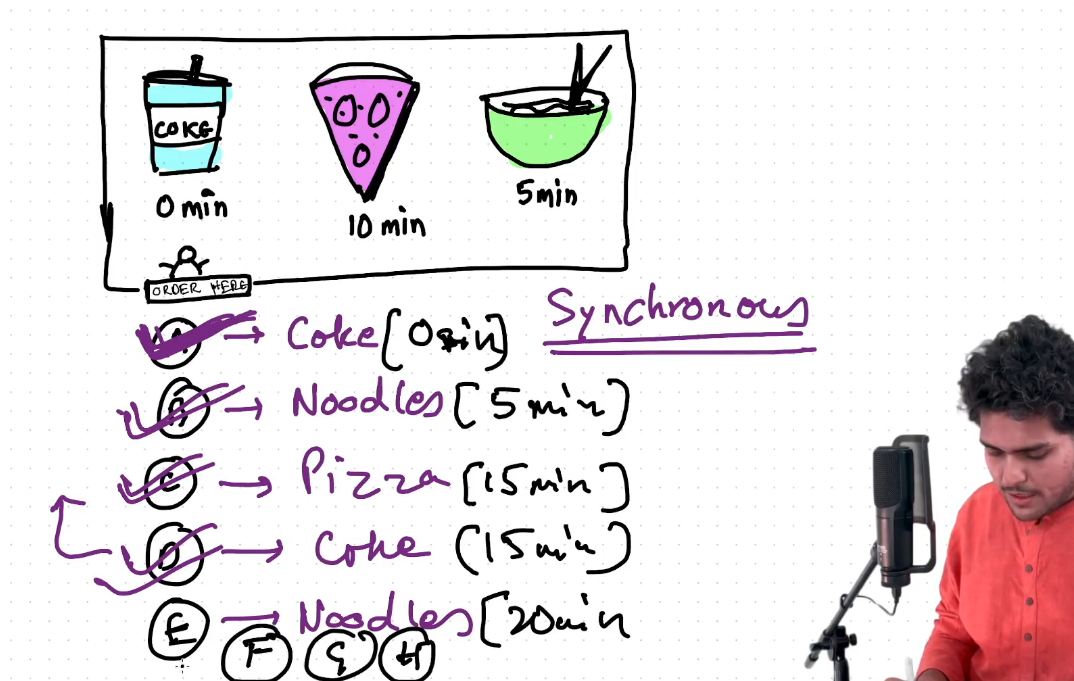 COKE
0 min
10 min
5min
ORDER HERE
A → Coke [0min]
Synchronous
B → Noodles [5min]
C → Pizza [15min]
D → Coke [15min]
E → Noodles [20min
F G H